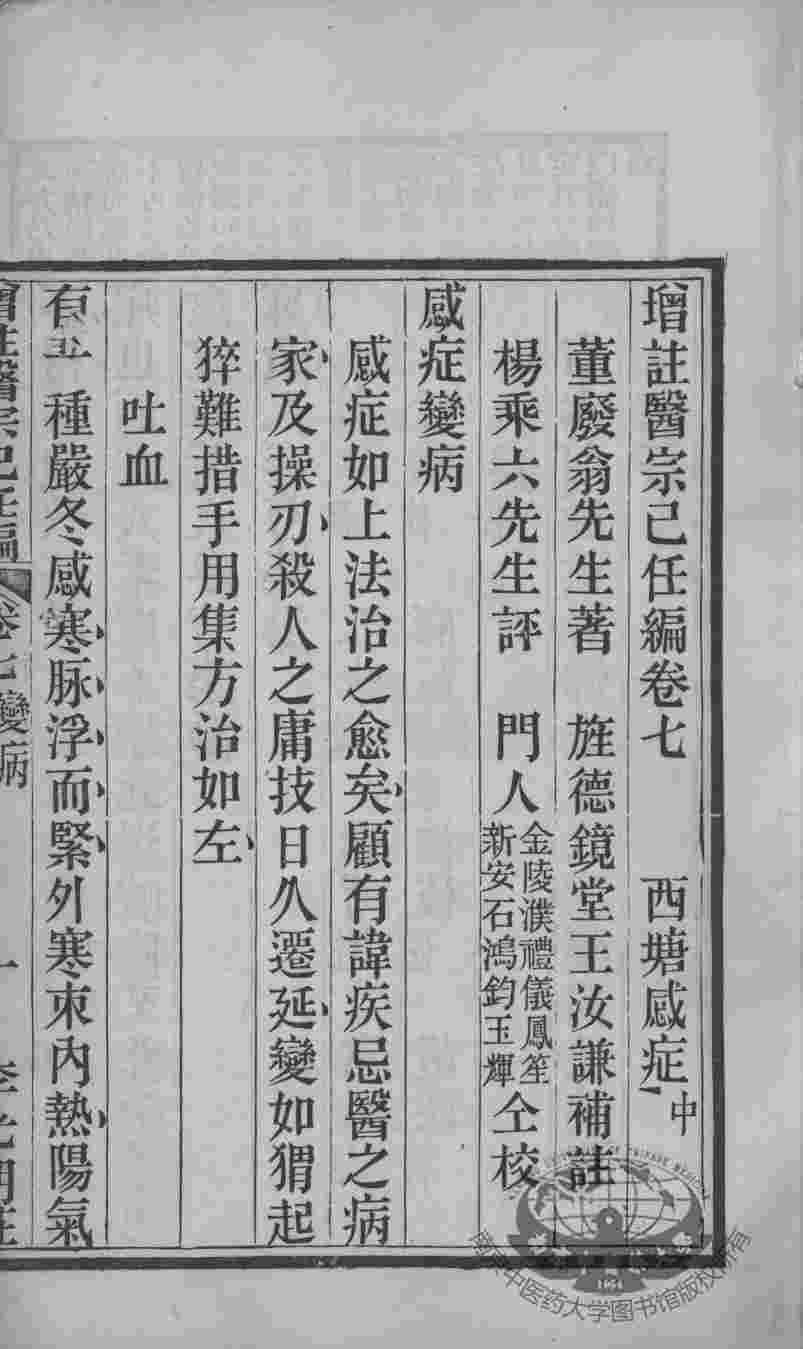 增註醫宗己任編卷七　西塘感症中
董廢翁先生著　旌德鏡堂王汝謙補註
楊乘六先生評　門人金陵濮禮儀鳳笙新安石鴻鈞玉輝仝校
感症變病
感症如上法治之愈矣顧有諱疾忌醫之病
家及操刃殺人之庸技日久遷延變如猬起
猝難措手用集方治如左
吐血
有　種嚴冬感寒脉浮而緊外寒束內熱陽氣
增註醫宗己任編　卷七變病　一
南京中医药大学图书馆版权所有